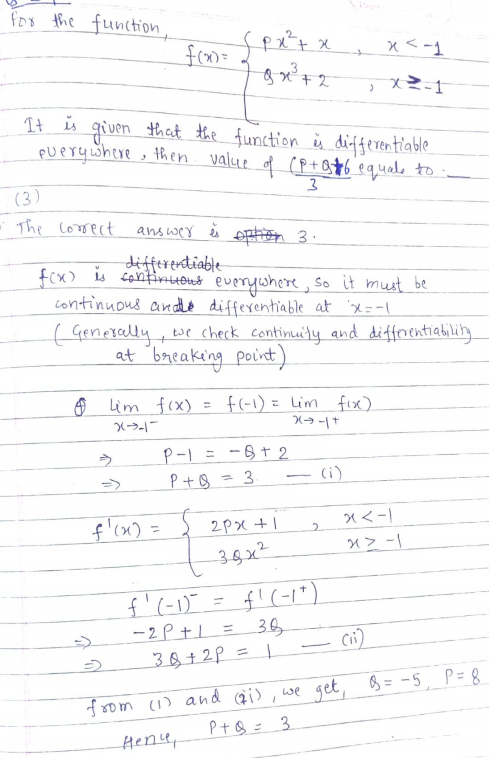 For the function,
f(x) = { px² + x , x < -1
Qx³ + 2 , x ≥ -1
It is given that the function is differentiable
everywhere, then value of (P+Q)+6 equals to :—
3
(3)
The correct answer is option 3.
differentiable
f(x) is continuous everywhere, so it must be
continuous and differentiable at x=-1
(Generally, we check continuity and differentiability
at breaking point)
lim f(x) = f(-1) = lim f(x)
x→-1⁻ x→-1+
⇒ P-1 = -Q+2
⇒ P+Q = 3 — (i)
f'(x) = { 2Px+1 , x<-1
3Qx² x ≥ -1
f'(-1)⁻ = f'(-1⁺)
⇒ -2P+1 = 3Q
⇒ 3Q+2P = 1 — (ii)
from (i) and (ii), we get, Q=-5, P=8
Hence, P+Q = 3